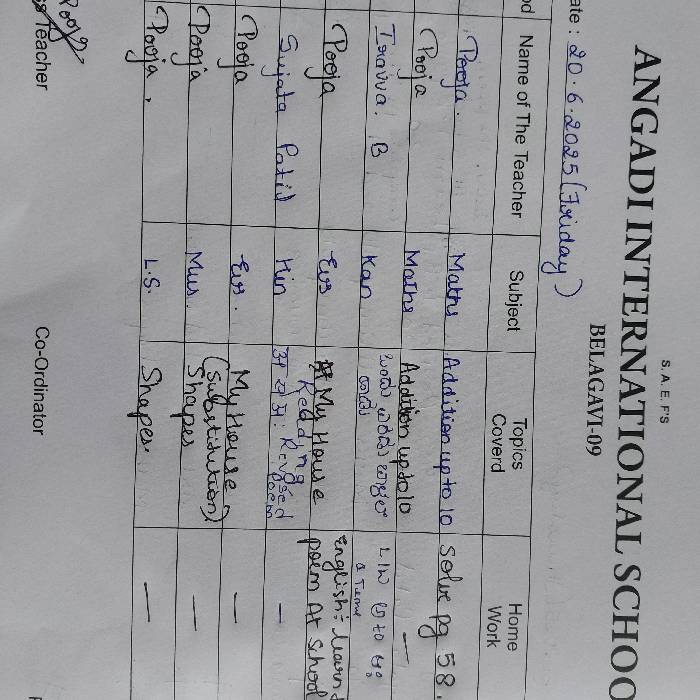 S.A.E.F'S
ANGADI INTERNATIONAL SCHOO
BELAGAVI-09
ate : 20.6.2025 (Friday)
od Name of The Teacher Subject Topics Coverd Home Work
Pooja. Maths Addition up to 10 Solve pg 58.
Pooja Maths Addition up to 10 —
Iravva. B Kan L/W
Pooja Evs My House English:- learn
Reading poem At School
Sujata Patil Hin Revised poem —
Pooja Evs. My House —
(substitution)
Pooja Mus Shapes —
Pooja. L.S. Shapes —
Pooja
Teacher Co-Ordinator